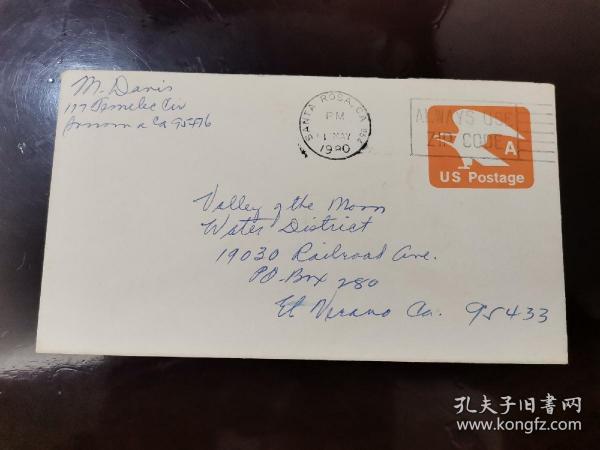 M. Davis
117 Temelec Cir
Sonoma Ca 95476
SANTA ROSA, CA 954
PM
1 MAY
1980
ALWAYS USE
ZIP CODE
A
US Postage
Valley of the Moon
Water District
19030 Railroad Ave.
P.O. Box 280
El Verano Ca. 95433
孔夫子旧书网
www.kongfz.com